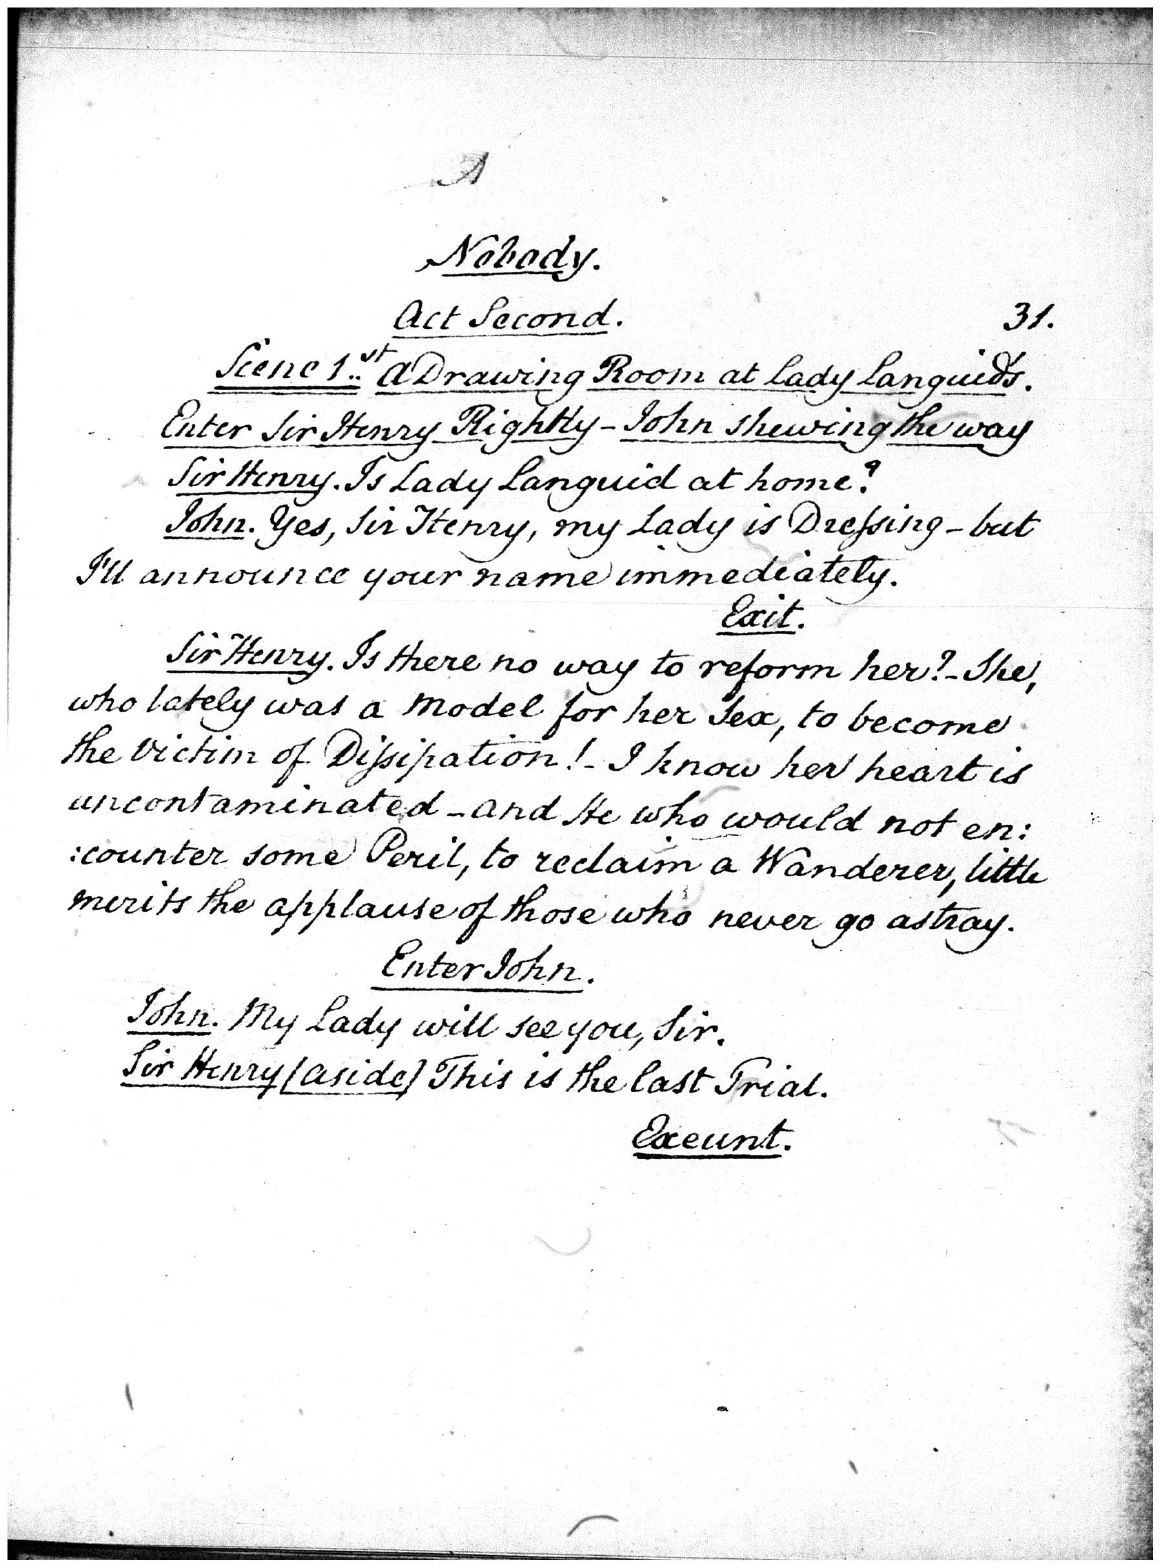 A
Nobody.
Act Second. 31.
Scene 1st. A Drawing Room at Lady Languid's.
Enter Sir Henry Rightly - John shewing the way
Sir Henry. Is Lady Languid at home?
John. Yes, Sir Henry, my Lady is Dreſsing - but
I'll announce your name immediately.
Exit.
Sir Henry. Is there no way to reform her? - She,
who lately was a Model for her Sex, to become
the Victim of Diſsipation! - I know her heart is
uncontaminated - and He who would not en:
:counter some Peril, to reclaim a Wanderer, little
merits the applause of those who never go astray.
Enter John.
John. My Lady will see you, Sir.
Sir Henry (aside) This is the last Trial.
Exeunt.